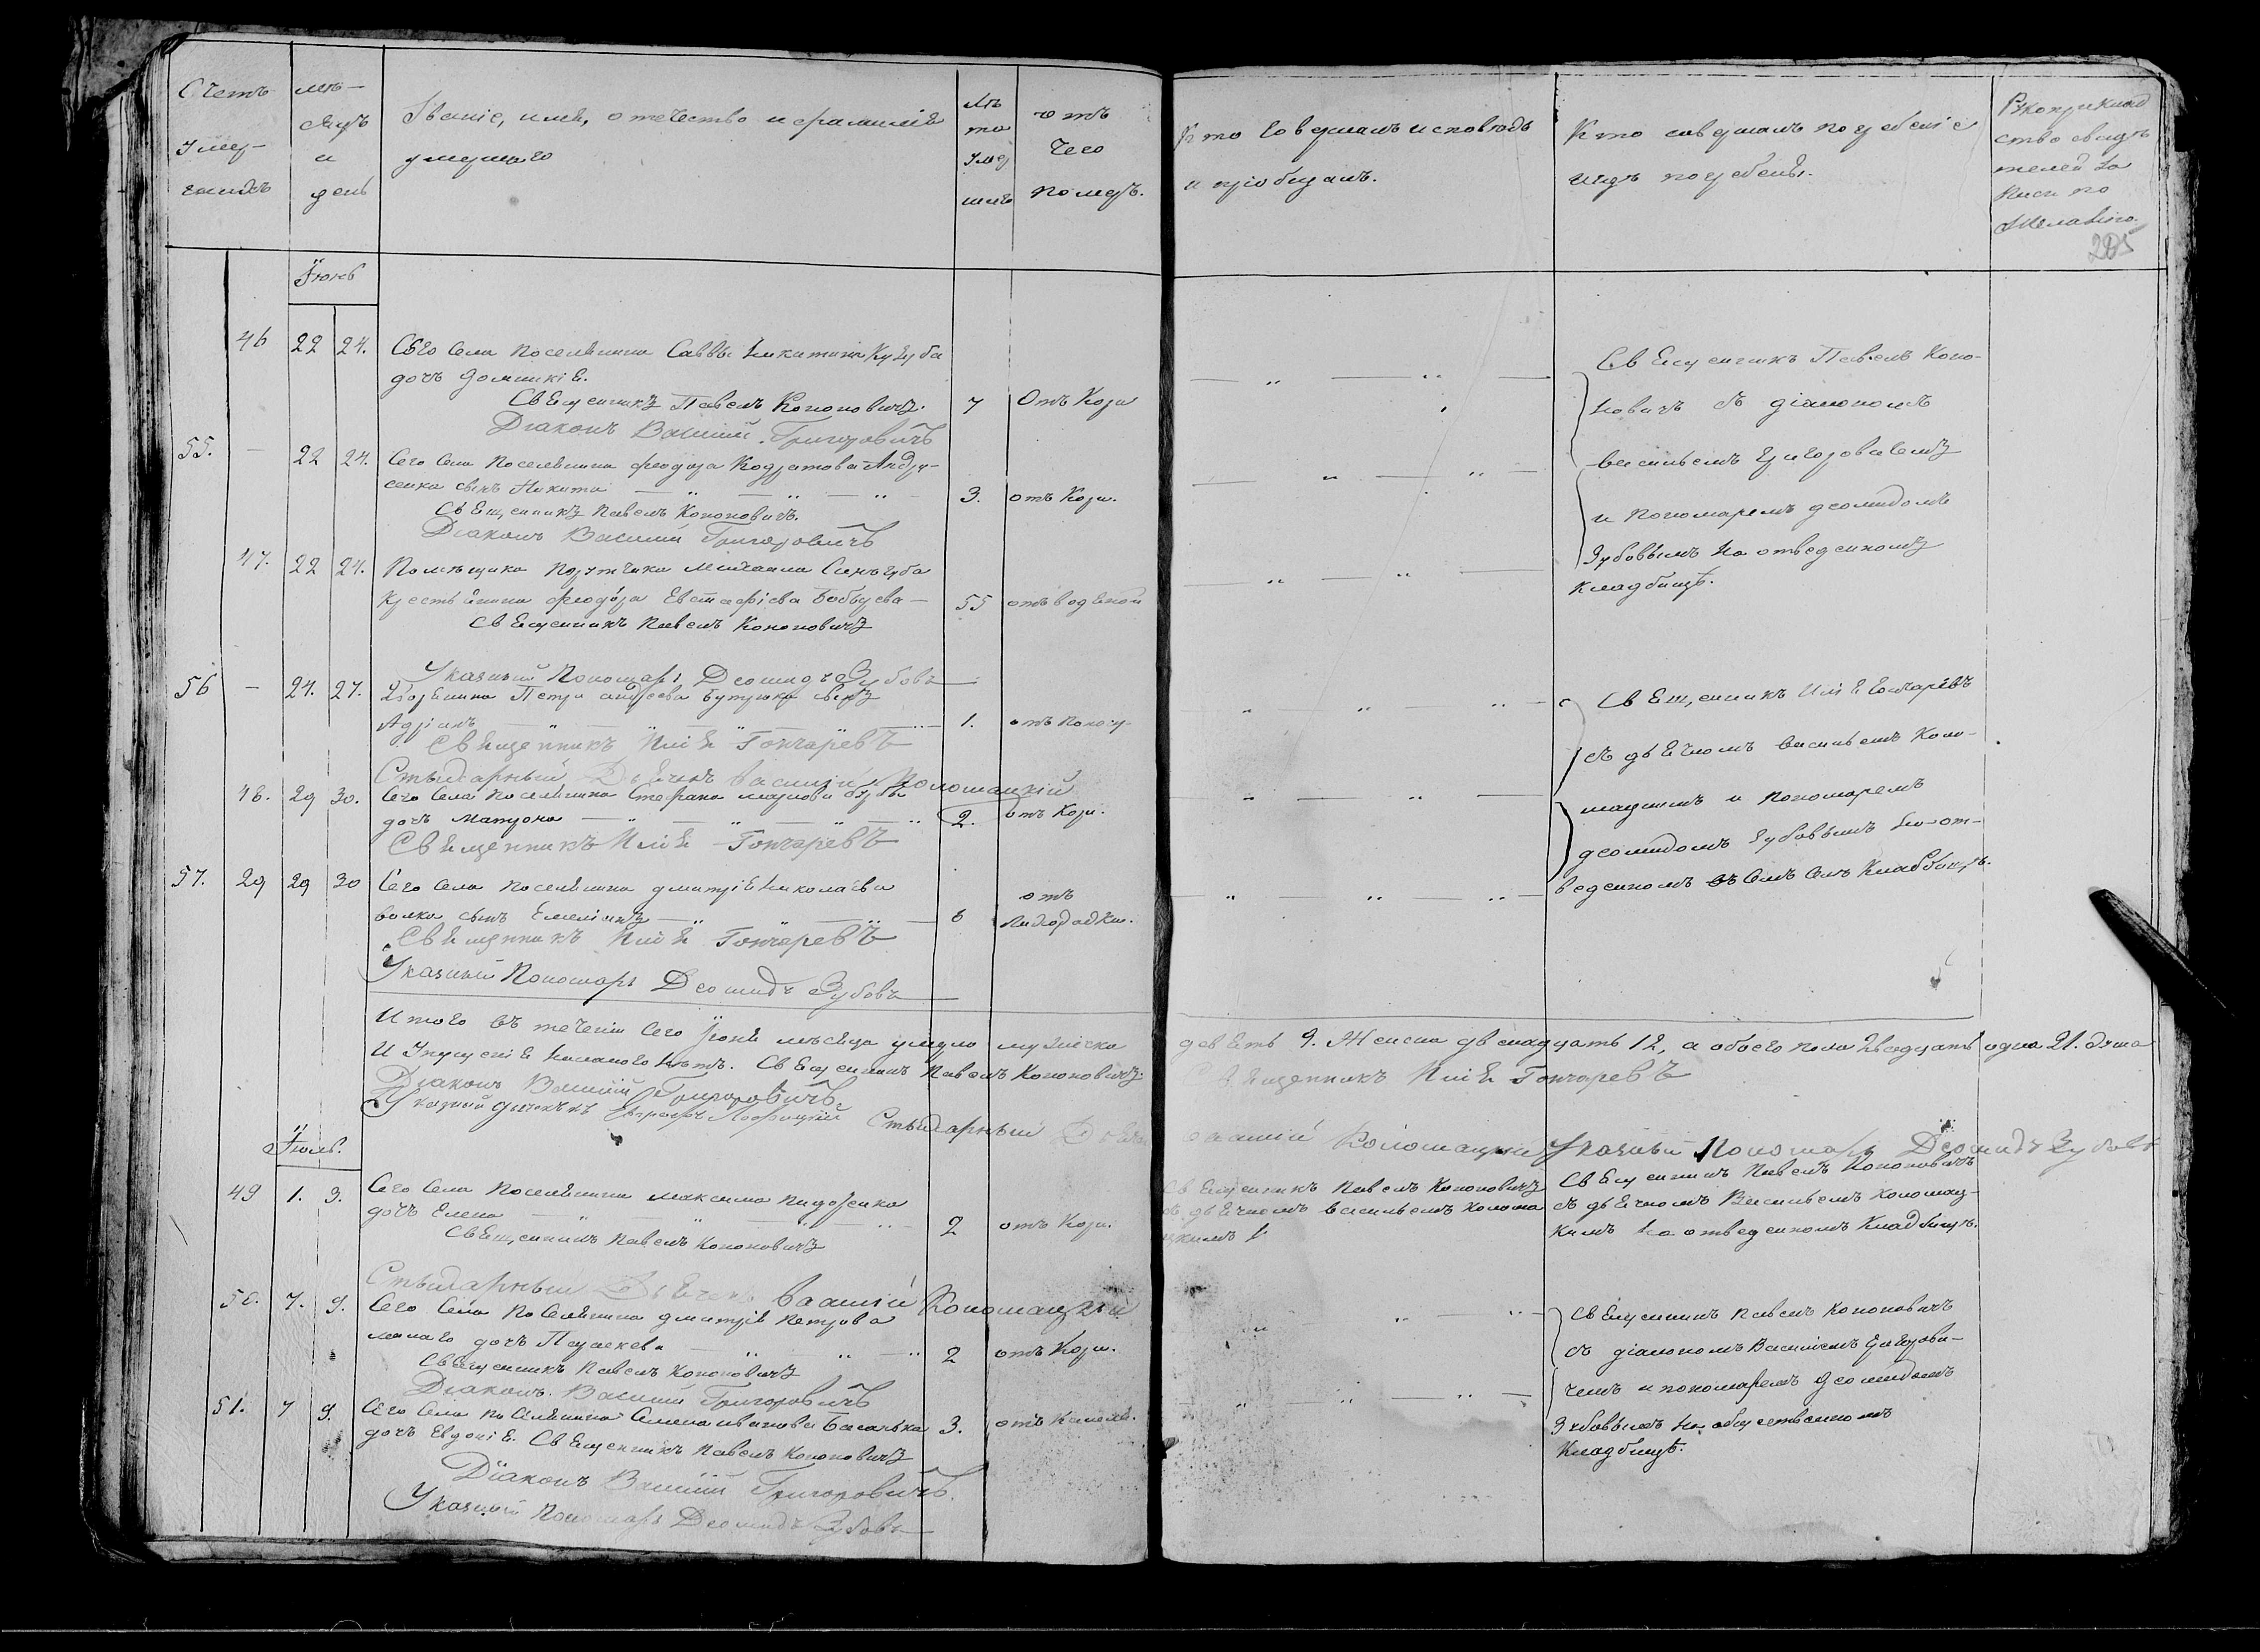 Счетъ умершихъ
мѣсяцъ и день
Званіе, имя, отечество и фамилія умершаго
Лѣта умершаго
отъ чего померъ.
Кто исповѣдывалъ и пріобщалъ.
Кто совершалъ погребеніе и гдѣ погребены.
205
Іюнь
46 22 24. Сего села поселянина Саввы Никитина
дочь Домникія.
7 Отъ Кори
Священникъ Павелъ Кононовичъ.
Діаконъ Василій Григоровичъ
55. — 22 24. Сего села поселянина Феодора Кодратова Андру-
сенка сынъ Никита
3. отъ Кори.
Священникъ Павелъ Кононовичъ.
Діаконъ Василій Григоровичъ
47. 22 24. Помѣщика поручика Михаила Синѣгуба
крестьянина Феодора Евстафіева
55 отъ водяной
Священникъ Павелъ Кононовичъ
Указный Пономарь Деомидъ Зубовъ
56 — 24. 27. Петра Андреева сынъ
Адріанъ
1. отъ поносу
Священникъ Илія Гончаревъ
Стихарный Дьячекъ Василій Коломацкій
48. 29 30. Сего села поселянина Стефана
дочь Матрона
2. отъ Кори.
Священникъ Илія Гончаревъ
57. 29 29 30 Сего села поселянина Димитрія Николаева
Волка сынъ Емеліанъ
6 отъ Лихорадки.
Священникъ Илія Гончаревъ
Указный Пономарь Деомидъ Зубовъ
Священникъ Павелъ Коно-
новичъ съ діакономъ
Василіемъ Григоровичемъ
и пономаремъ Деомидомъ
Зубовымъ на отведенномъ
кладбищѣ.
Священникъ Илія Гончаревъ
съ дьячкомъ Василіемъ Коло-
мацкимъ и пономаремъ
Деомидомъ Зубовымъ на от-
веденномъ въ семъ селѣ Кладбищѣ.
Итого въ теченіи сего Іюня мѣсяца умерло мужеска девять 9. Женска двенадцать 12, а обоего пола двадцать одна 21. душа
И упущенія никакого нѣтъ. Священникъ Павелъ Кононовичъ. Священникъ Илія Гончаревъ
Діаконъ Василій Григоровичъ.
Указный дьячекъ
Стихарный Дьячекъ Василій Коломацкій Указный Пономарь Деомидъ Зубовъ
Іюль.
49 1. 3. Сего села поселянина Максима Пидоренка
дочь Елена
2 отъ Кори.
Священникъ Павелъ Кононовичъ
Стихарный Дьячекъ Василій Коломацкій
Священникъ Павелъ Кононовичъ
съ дьячкомъ Василіемъ Колома
цкимъ
Священникъ Павелъ Кононовичъ
съ дьячкомъ Василіемъ Коломац-
кимъ на отведенномъ Кладбищѣ.
50. 7. 9. Сего села поселянина Димитрія Петрова
Малаго дочь Параскева
2 отъ Кори.
Священникъ Павелъ Кононовичъ
Діаконъ Василій Григоровичъ
51. 7 9. Сего села поселянина Семена Иванова
дочь Евдокія.
3. отъ
Священникъ Павелъ Кононовичъ
Діаконъ Василій Григоровичъ.
Указный Пономарь Деомидъ Зубовъ
Священникъ Павелъ Кононовичъ
съ діакономъ Василіемъ Григорови-
чемъ и пономаремъ Деомидомъ
Зубовымъ на общественномъ
Кладбищѣ.